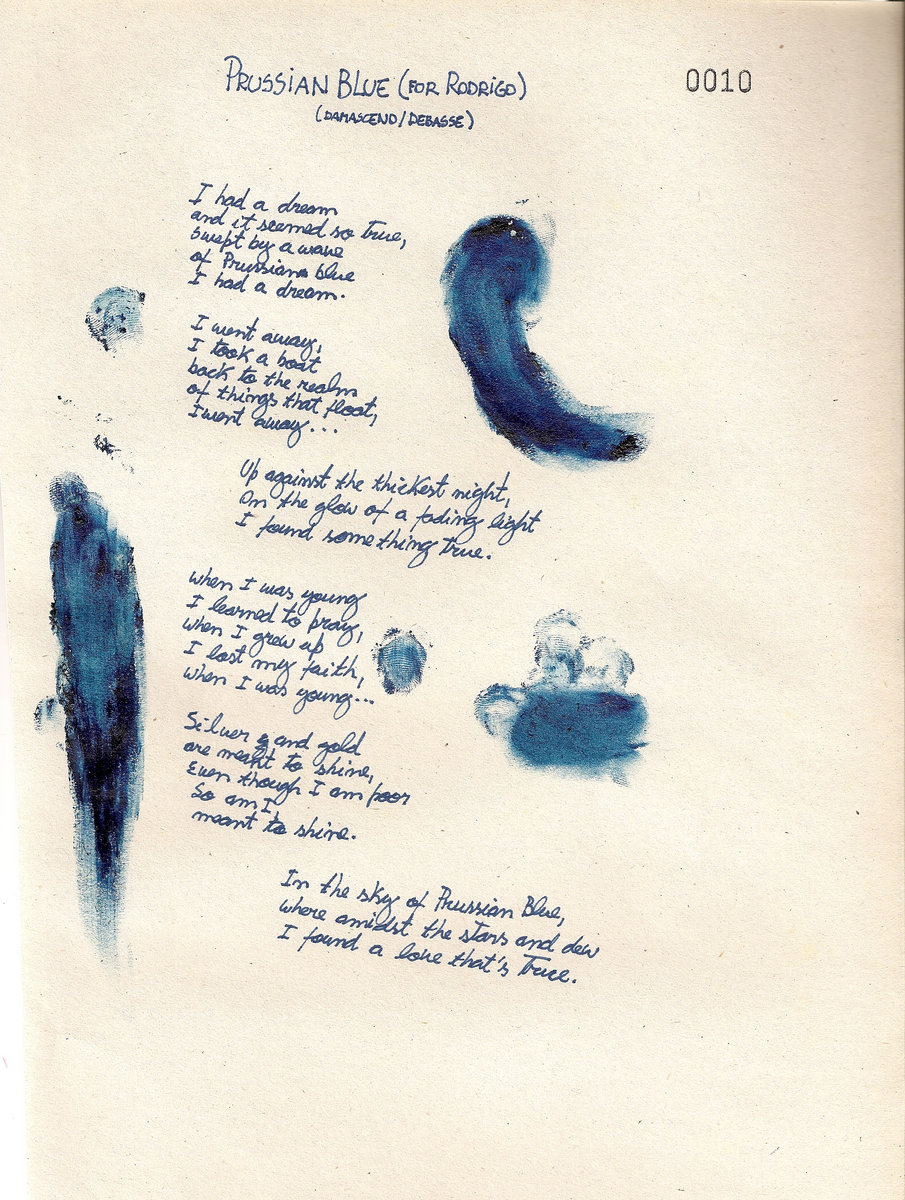 PRUSSIAN BLUE (FOR RODRIGO)
0010
(DAMASCENO/DEBASSE)
I had a dream
and it seemed so True,
swept by a wave
of Prussian blue
I had a dream.
I went away,
I took a boat
back to the realm
of things that float,
I went away...
Up against the thickest night,
On the glow of a fading light
I found something true.
when I was young
I learned to pray,
when I grew up
I lost my faith,
when I was young...
Silver and gold
are meant to shine,
Even though I am poor
So am I,
meant to shine.
In the sky of Prussian Blue,
where amidst the stars and dew
I found a love that's True.